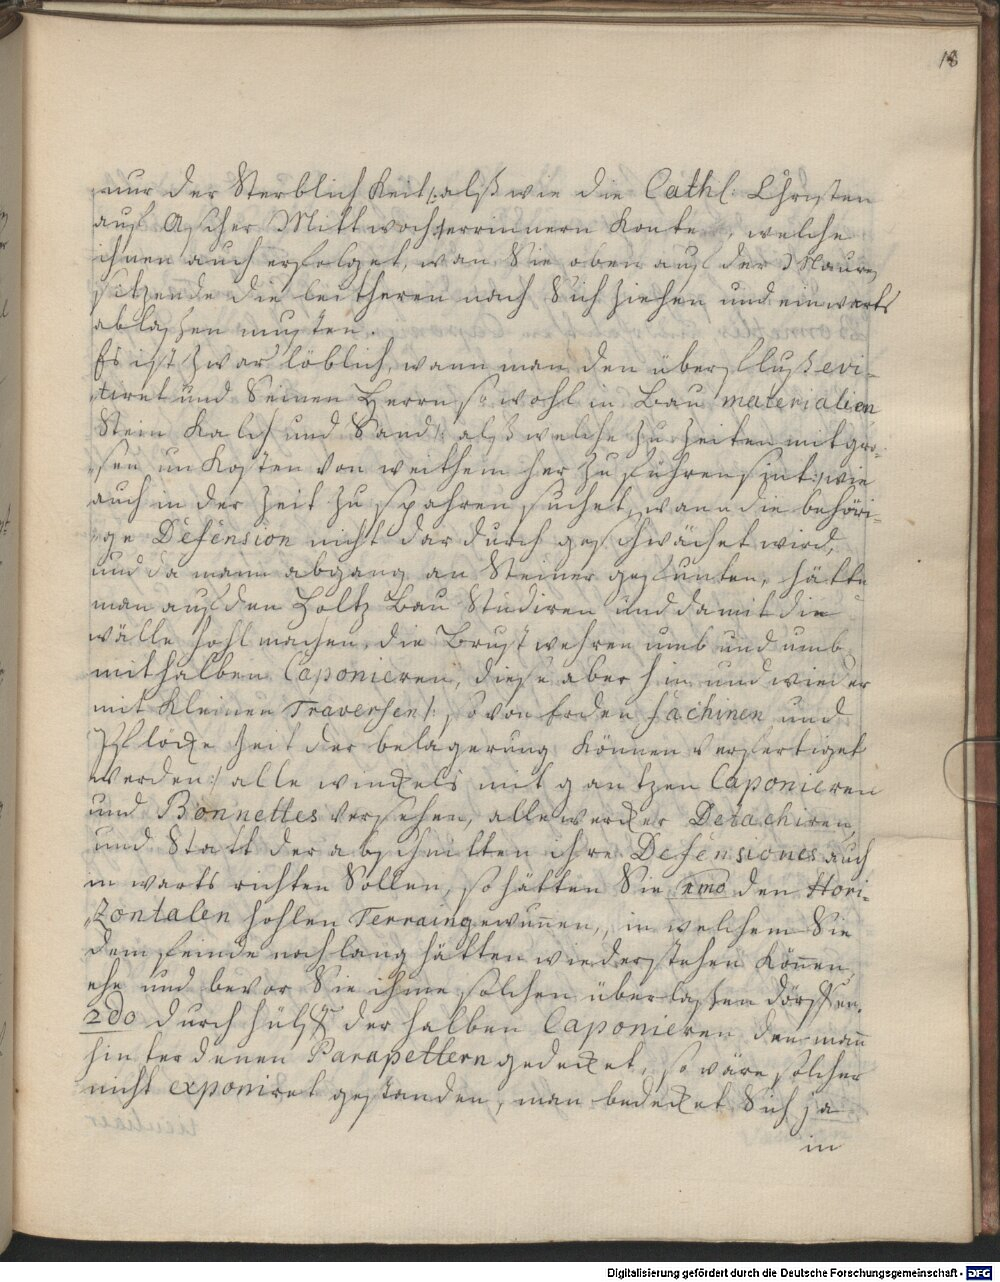 18
nur der Sterblich Keit /: alß wie die Cathl: Christen
auf Ascher Mittwoch :/ errinnern Konte, welche
ihnen auch erfolget, wan Sie oben auf der Maure
sitzende die leitheren nach Sich ziehen und einwarts
ablaßen musten.
Es ist zwar löblich, wann man den überfluß evi-
tiret und Seinen Herrn so wohl in Bau materialien
Stein Kalch und Sand /: alß welche zu Zeiten mit gro-
sen unKosten von weithem her zu führen sint :/ wie
auch in der Zeit zu spahren suchet, wann die behöri-
ge Defension nicht dar durch geschwächet wird,
und da mann abgang an Steiner gefunten, hätte
man auf den Holtz Bau Studiren und damit die
wälle hohl machen, die Brustwehren umb und umb
mit halben Caponieren, diese aber hin und wieder
mit Kleinen Traversen /: so von Erden fachinen und
Pflöcke Zeit der belagerung Können verfertiget
werden :/ alle winckels mit gantzen Caponieren
und Bonnettes versehen, alle wercker Detachiren,
und Statt der abschnitten ihre Defensiones auch
in warts richten Sollen, so hätten Sie 1mo den Hori-
zontalen hohlen Terrain gewunen, in welchem Sie
dem feinde noch lang hätten wiederstehen Könen,
ehe und bevor Sie ihme solchen überlaßen dörffen.
2do durch hülff der halben Caponieren den man
hinter denen Parapettern gedecket, so wäre solcher
nicht exponiret gestanden, man bedecket Sich ja
in
Digitalisierung gefördert durch die Deutsche Forschungsgemeinschaft - DFG